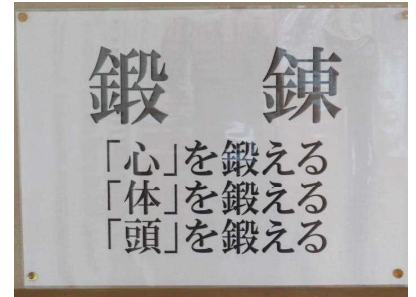 鍛　錬
「心」を鍛える
「体」を鍛える
「頭」を鍛える